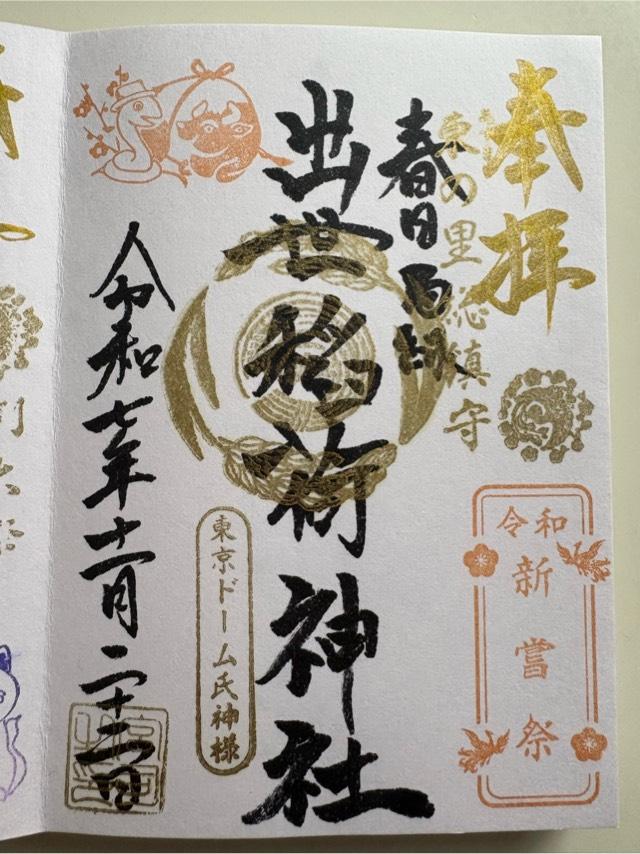 奉拝
の里総鎮守
春日局
出世稲荷神社
令和七年十一月二十二日
東京ドーム氏神様
令和
新嘗祭